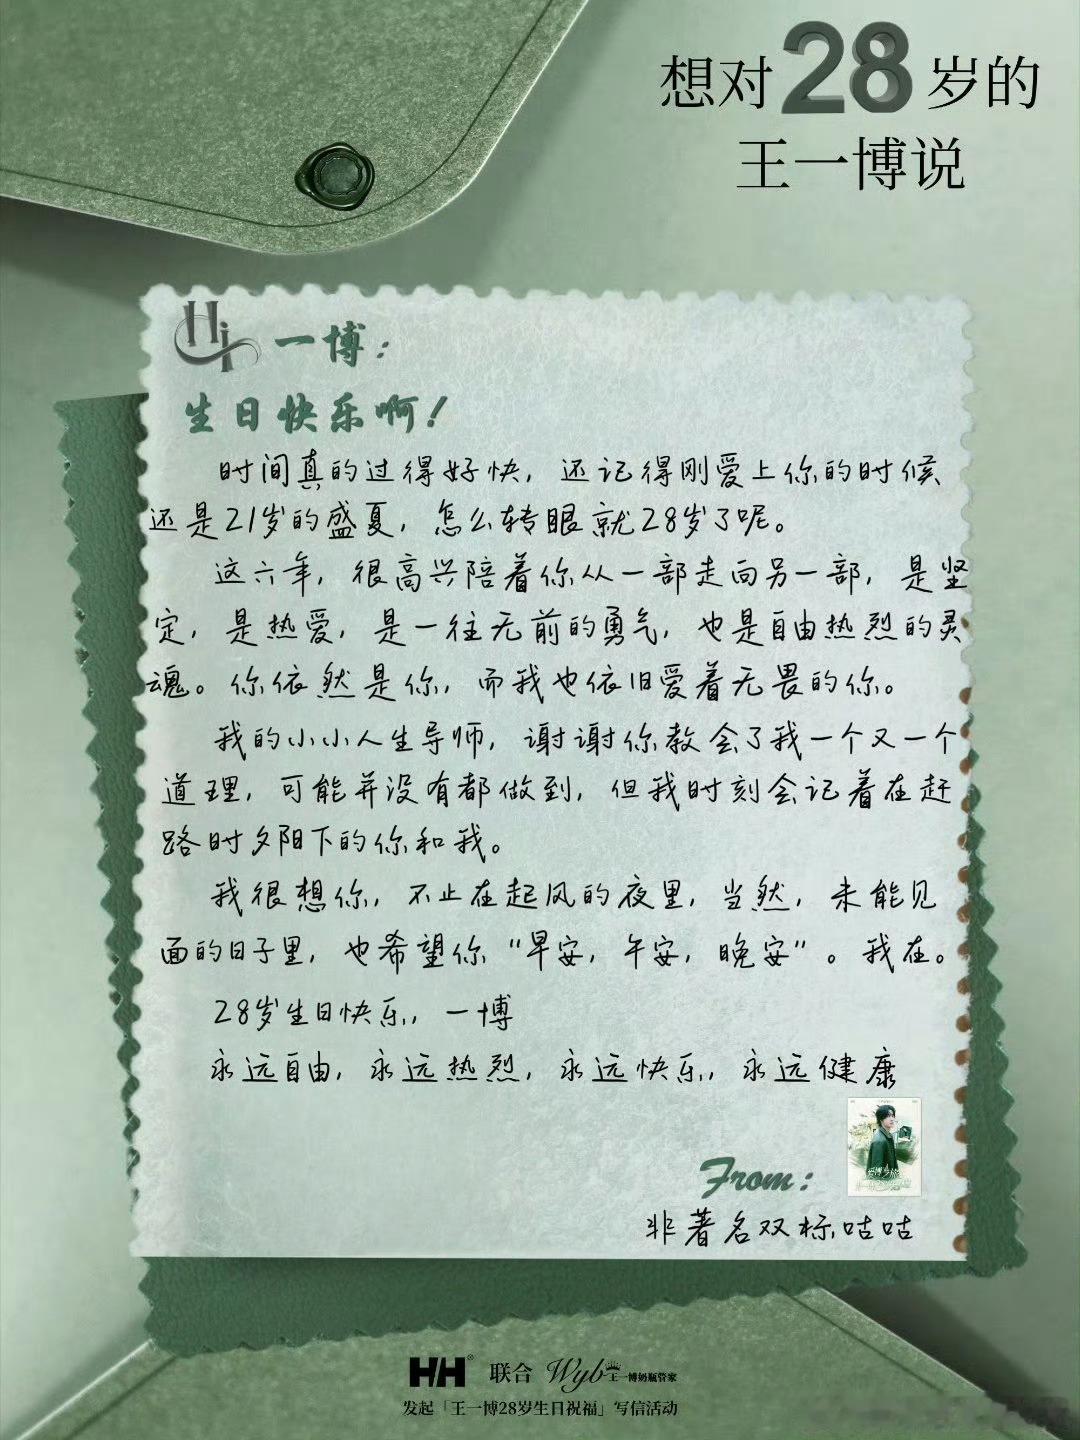 想对28岁的
王一博说
Hi 一博：
生日快乐啊！
时间真的过得好快，还记得刚爱上你的时候
还是21岁的盛夏，怎么转眼就28岁了呢。
这六年，很高兴陪着你从一部走向另一部，是坚
定，是热爱，是一往无前的勇气，也是自由热烈的灵
魂。你依然是你，而我也依旧爱着无畏的你。
我的小小人生导师，谢谢你教会了我一个又一个
道理，可能并没有都做到，但我时刻会记着在赶
路时夕阳下的你和我。
我很想你，不止在起风的夜里，当然，未能见
面的日子里，也希望你“早安，午安，晚安”。我在。
28岁生日快乐，一博
永远自由，永远热烈，永远快乐，永远健康
From：
非著名双标咕咕
HH® 联合 Wyb王一博奶瓶管家
发起「王一博28岁生日祝福」写信活动